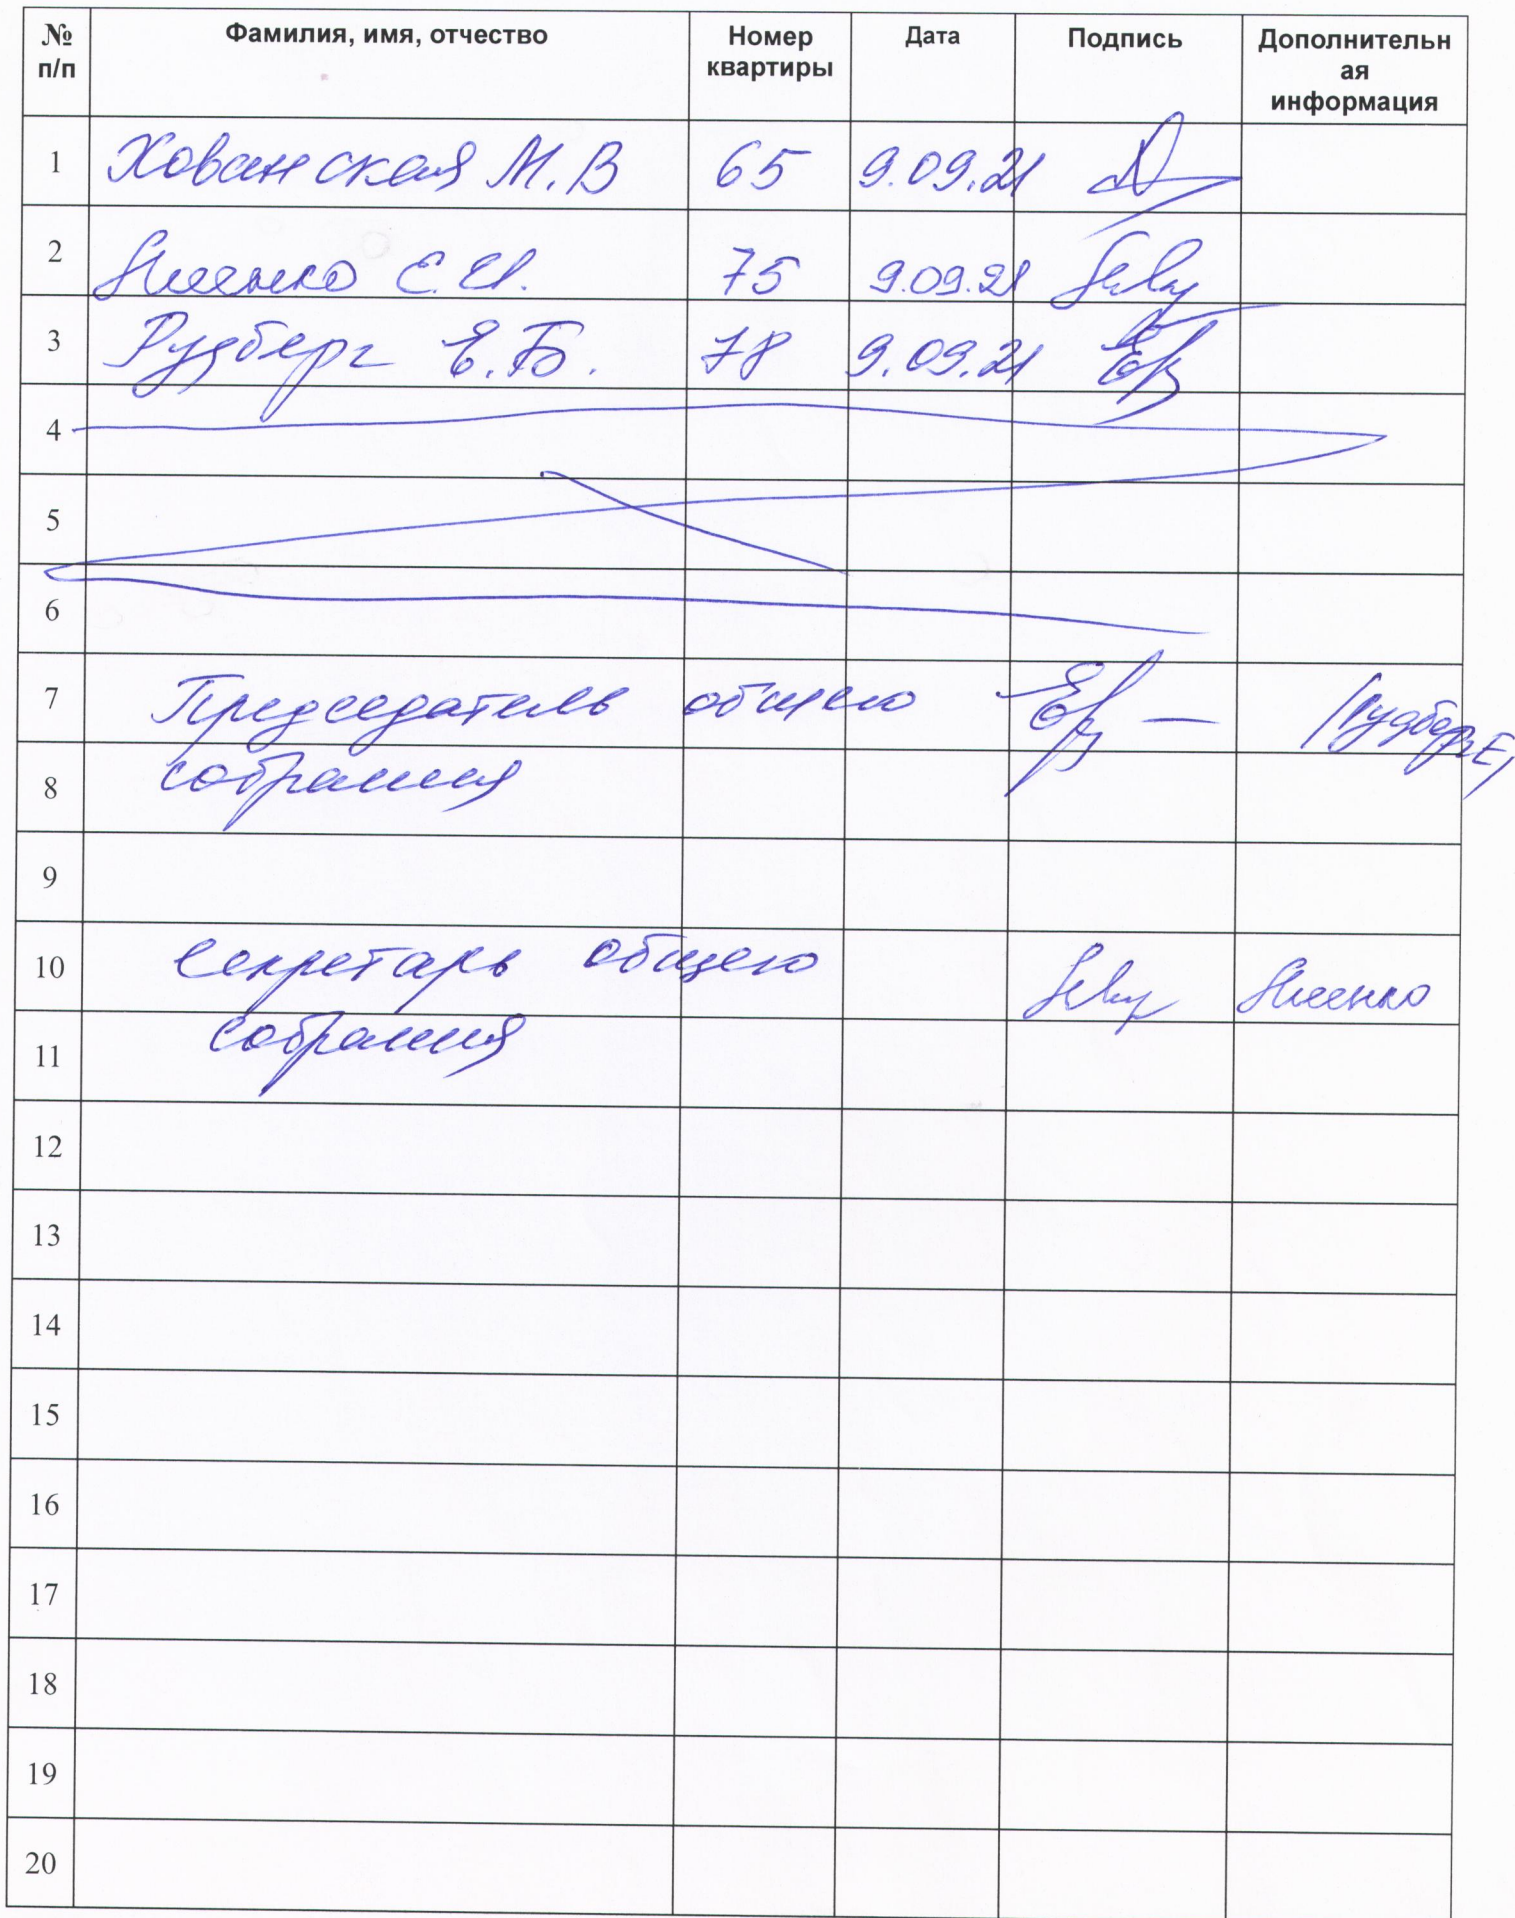 № п/п Фамилия, имя, отчество Номер квартиры Дата Подпись Дополнительная информация
1 Хованская М.В 65 9.09.21
2 Е.И. 75 9.09.21
3 Рудберг Е.Б. 78 9.09.21
4
5
6
7 Председатель общего Рудберг Е
8 собрания
9
10 Секретарь общего
11 собрания
12
13
14
15
16
17
18
19
20